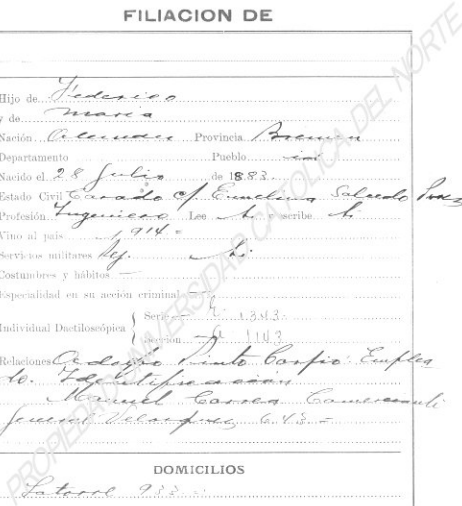 FILIACION DE
Hijo de Federico
y de Maria
Nación Alemana Provincia Bremen
Departamento Pueblo id
Nacido el 28 Julio de 1883.
Estado Civil Casado c/ Salcedo
Profesión Ingeniero Lee si escribe si
Vino al país 1914
Servicios militares si
Costumbres y hábitos —
Especialidad en su acción criminal —
Individual Dactiloscópica
Serie 1343
Sección 1143
Relaciones Pinto Carpio Emplea
do. Identificación
Manuel Correa Comerciante
643
DOMICILIOS
Latorre 933
PROPIEDAD UNIVERSIDAD CATOLICA DEL NORTE